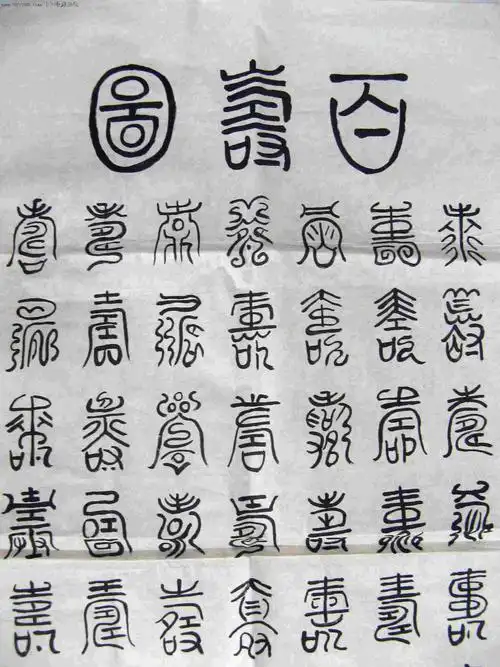 百壽圖
壽壽壽壽壽壽壽
壽壽壽壽壽壽壽
壽壽壽壽壽壽壽
壽壽壽壽壽壽壽
壽壽壽壽壽壽壽